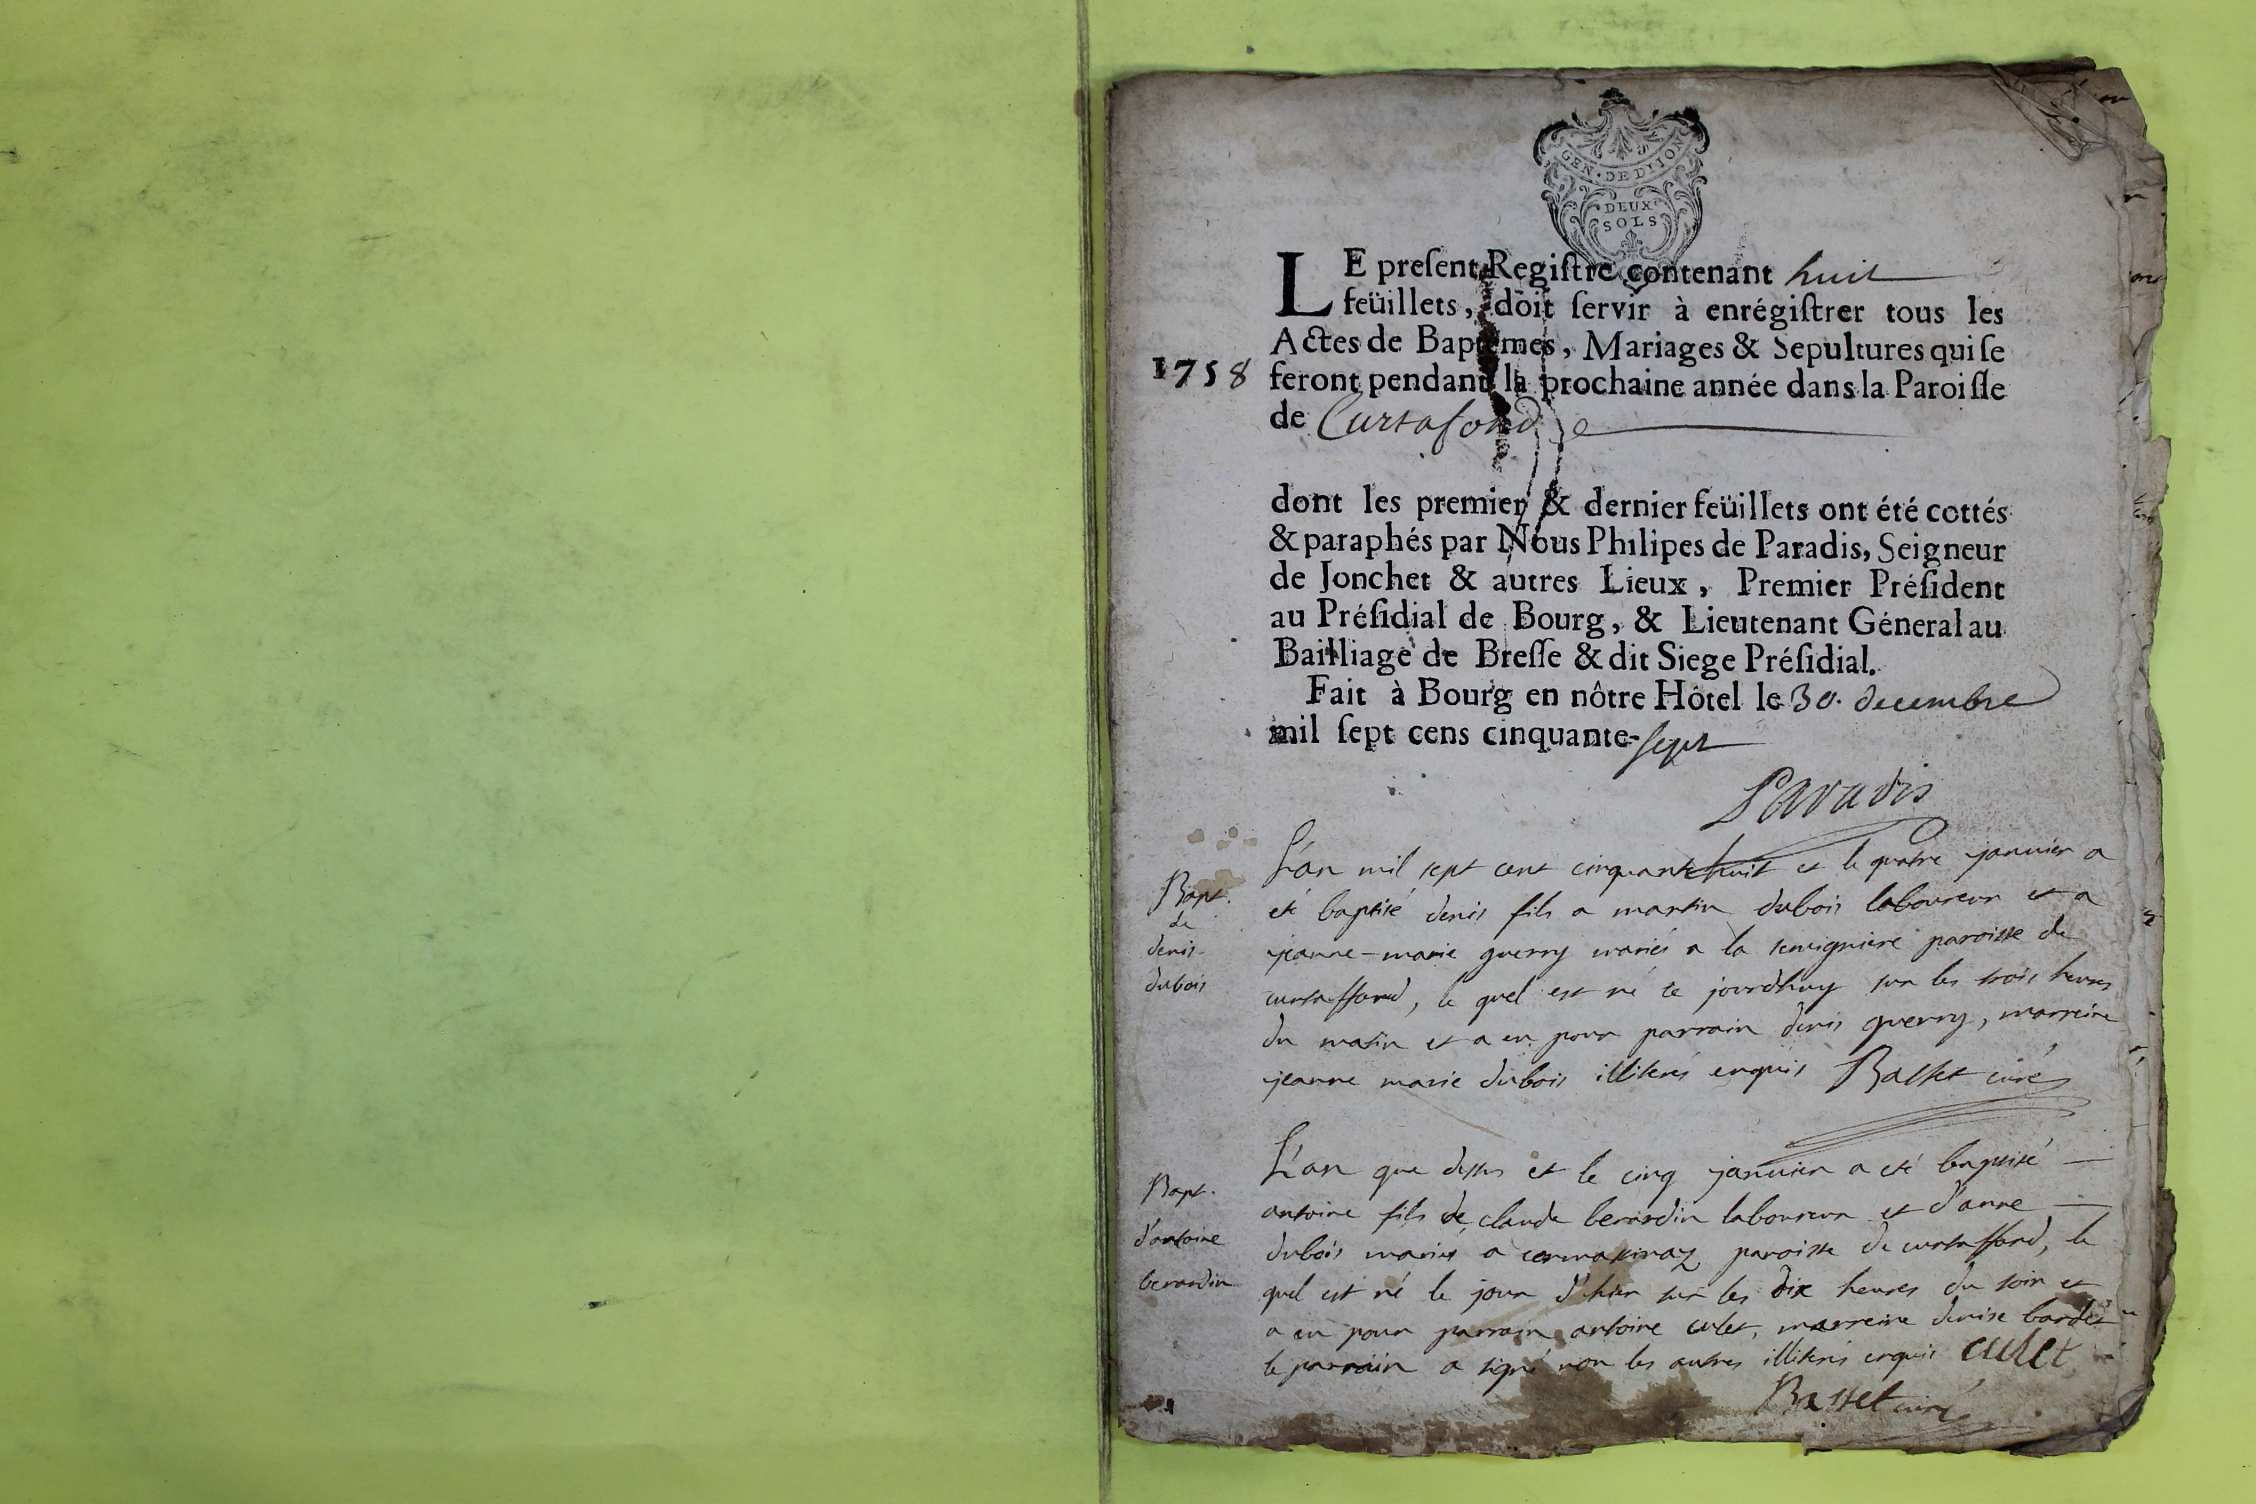 GEN. DE DIJON
DEUX
SOLS
LE preſent Regiſtre contenant huit
feüillets, doit ſervir à enrégiſtrer tous les
Actes de Baptêmes, Mariages & Sepultures qui ſe
1758 feront pendant la prochaine année dans la Paroiſſe
de Curtafond
dont les premier & dernier feüillets ont été cottés
& paraphés par Nous Philipes de Paradis, Seigneur
de Jonchet & autres Lieux, Premier Préſident
au Préſidial de Bourg, & Lieutenant Géneral au
Bailliage de Breſſe & dit Siege Préſidial.
Fait à Bourg en nôtre Hôtel le 30. decembre
mil ſept cens cinquante-sept
Paradis
Bapt.
de
denis
dubois
L'an mil sept cent cinquante huit et le quatre janvier a
eté baptisé denis fils a martin dubois laboureur et a
jeanne-marie guerry mariés a la paroisse de
curtaffond, le quel est né ce jourdhuy sur les trois heures
du matin et a eu pour parrain denis guerry, marreine
jeanne marie dubois illiterés enquis Basset curé
Bapt.
d'antoine
berardin
L'an que dessus et le cinq janvier a eté baptisé
antoine fils de claude berardin laboureur et d'anne
dubois mariés a paroisse de curtaffond, le
quel est né le jour d'hier sur les dix heures du soir et
a eu pour parrain antoine culet, marreine denise bardet
le parrain a signé non les autres illiterés enquis culet
Basset curé